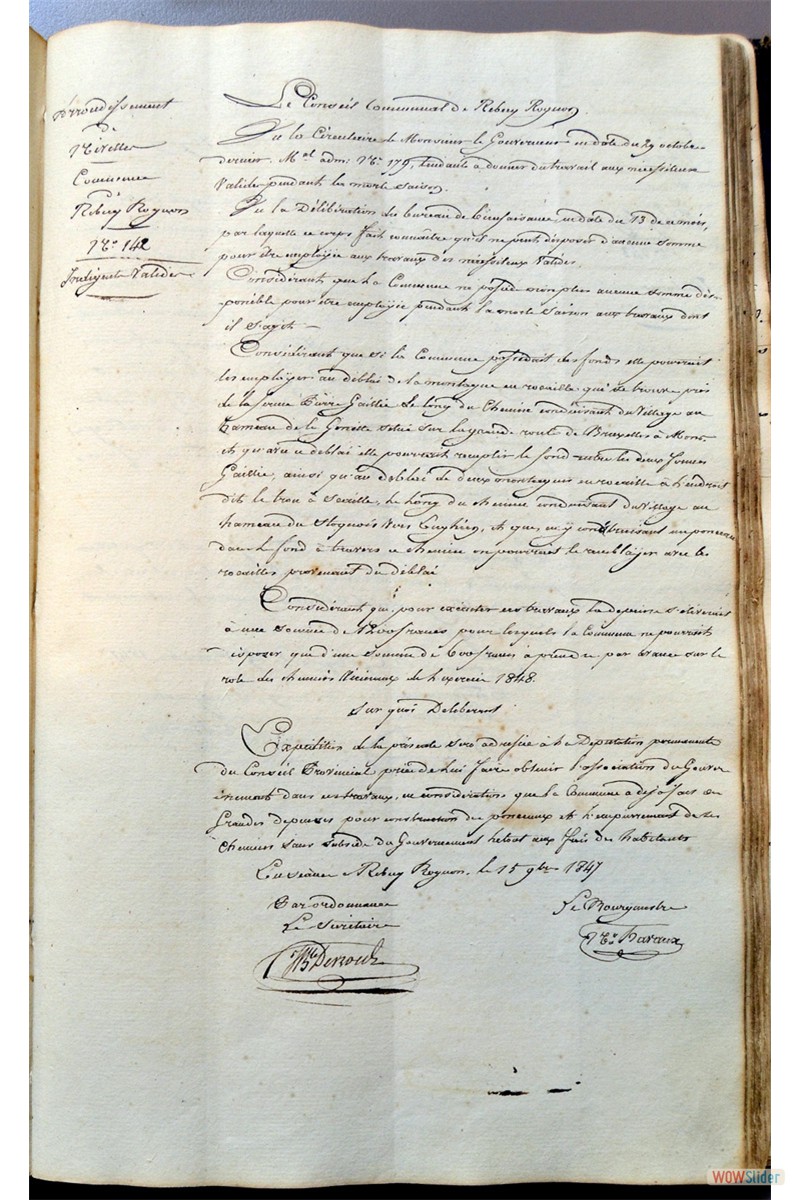 Arrondissement
de
Nivelles
Commune
de
Rebecq Rognon
N° 142
Indigents Valides
Le Conseil Communal de Rebecq Rognon
Vu la Circulaire de Monsieur le Gouverneur en date du 29 octobre
dernier, M.el adm: N° 179, tendante à donner du travail aux nécessiteux
Valides pendant la morte Saison.
Vu la Délibération du bureau de bienfaisance, en date du 13 de ce mois,
par laquelle ce corps fait connaître qu'il ne peut disposer d'aucune somme
pour être employée aux travaux des nécessiteux Valides
Considérant que la Commune ne possède non plus aucune somme dis-
ponible pour être employée pendant la morte Saison aux travaux dont
il s'agit
Considérant que si la Commune possédait des fonds elle pourrait
les employer au déblai de la montagne en rocaille qui se trouve près
de la ferme Pierre Gaillie le long du Chemin conduisant du Village au
hameau de la Genette situé sur la grande route de Bruxelles à Mons,
et qu'avec ce déblai elle pourrait remplir le fond entre les deux fermes
Gaillie, ainsi qu'au déblai de deux montagnes en rocaille à l'endroit
dit le trou à , le long du chemin conduisant du Village au
hameau du Stoquois Vers Enghien, et que, en y construisant un ponceau
dans le fond à travers ce chemin on pourrait le remblayer avec les
rocailles provenant du déblai
Considérant que, pour exécuter ces travaux la dépense s'élèverait
à une Somme de 1200 francs pour lesquels la Commune ne pourrait
disposer que d'une Somme de 600 francs à prendre par avance sur le
role des chemins Vicinaux de l'exercice 1848.
Sur quoi Délibérant
Expédition de la présente Sera adressée à La Députation permanente
du Conseil Provincial priée de lui faire obtenir l'association du Gouver
nement dans ces travaux, en considération que la Commune a déjà fait de
Grandes dépenses pour construction de ponceaux et l'empierrement de ses
Chemins Sans Subside du Gouvernement le tout aux frais des habitants
En séance à Rebecq Rognon, le 15 9bre 1847
Par ordonnance
Le Secrétaire
Le Bourgmestre
WOWSlider